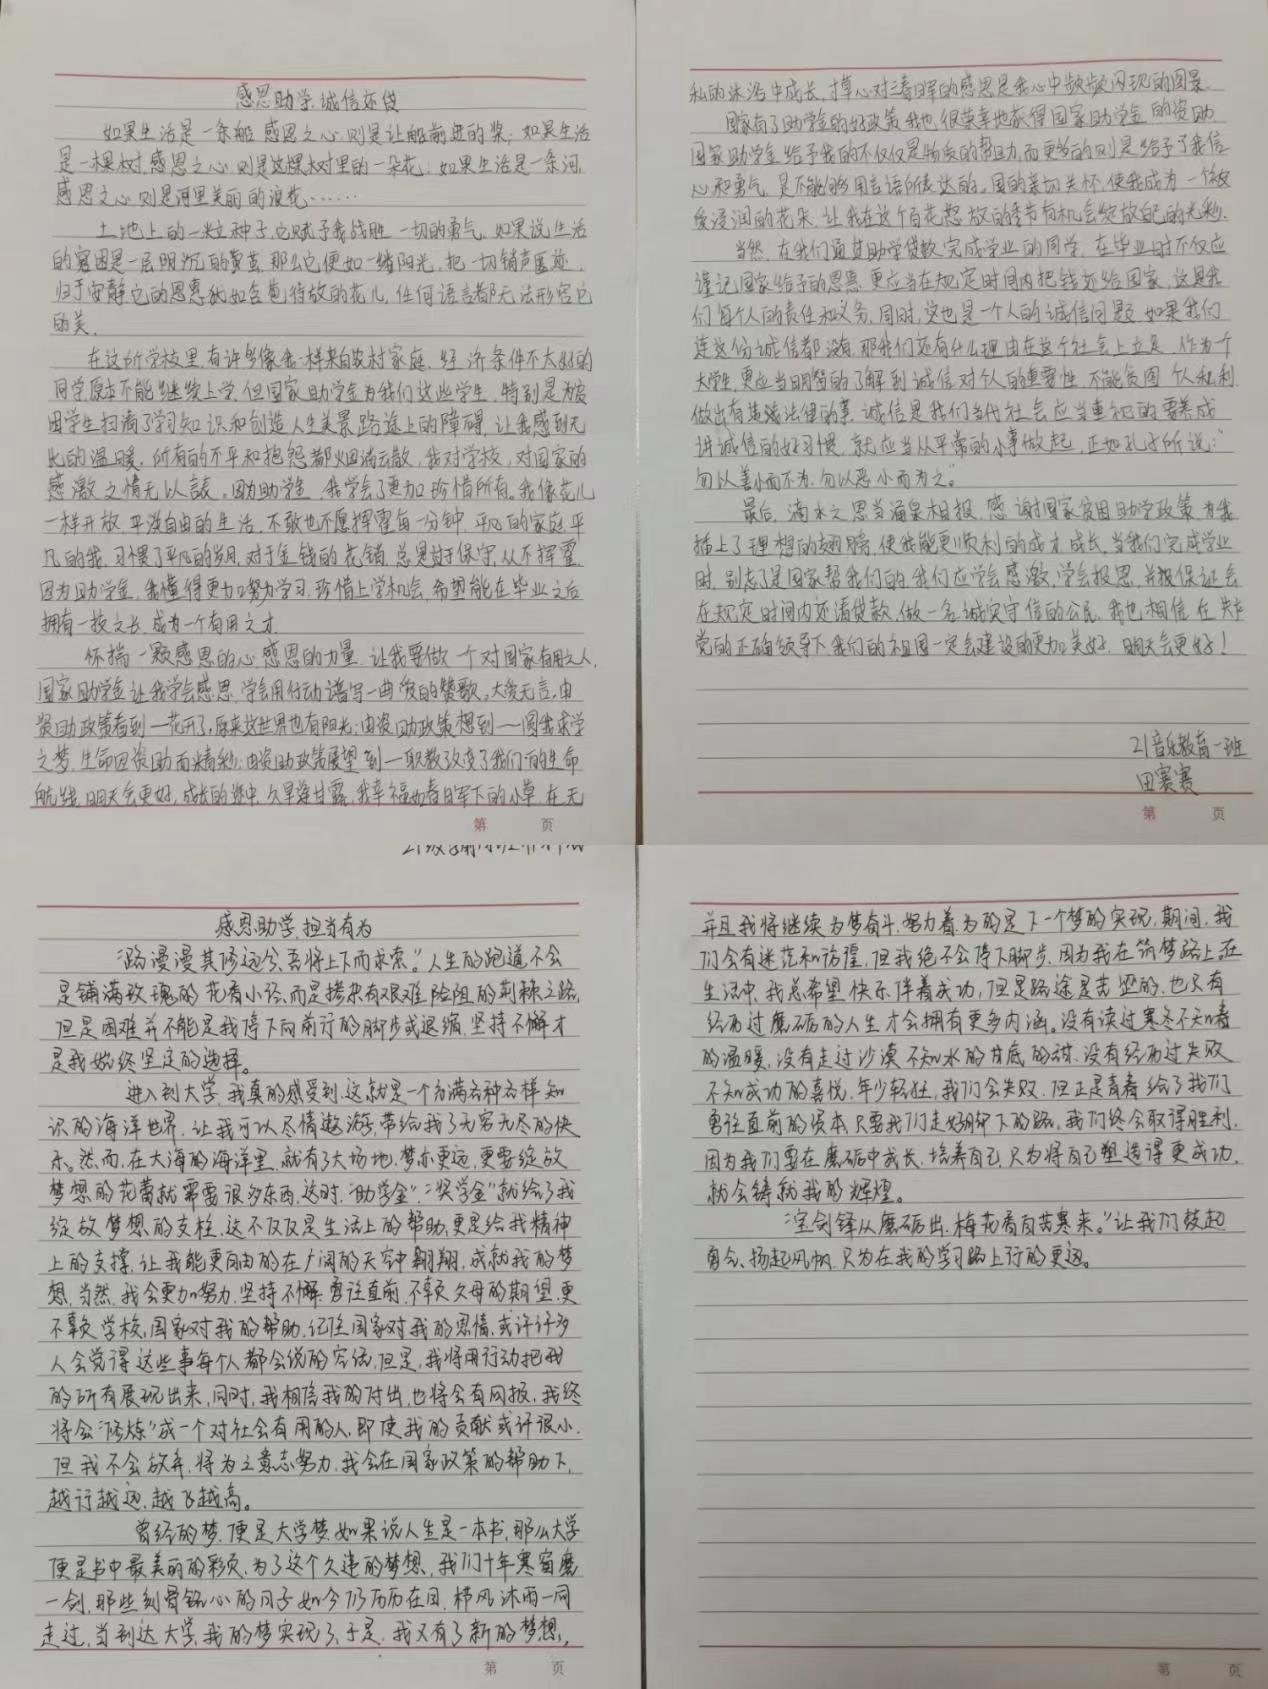 感恩助学,诚信还贷
如果生活是一条船,感恩之心则是让船前进的桨;如果生活
是一棵树,感恩之心则是这棵树里的一朵花;如果生活是一条河,
感恩之心则是河里美丽的浪花……
土地上的一粒种子,它赋予我战胜一切的勇气,如果说生活
的窘困是一层阴沉的雾莒,那么它便如一绪阳光,把一切销声匿迹,
归于安静它的恩惠犹如含苞待放的花儿,任何语言都无法形容它
的美.
在这所学校里,有许多像我一样来自农村家庭,经济条件不太好的
同学原本不能继续上学,但国家助学金为我们这些学生,特别是为贫
困学生扫清了学习知识和创造人生美景路途上的障碍,让我感到无
比的温暖,所有的不平和抱怨都烟消云散,我对学校,对国家的
感激之情无以言表。因为助学金,我学会了更加珍惜所有。我像花儿
一样开放,平淡自由的生活,不敢也不愿挥霍每一分钟,平凡的家庭,平
凡的我,习惯了平凡的岁月,对于金钱的花销,总是过于保守,从不挥霍.
因为助学金,我懂得更加努力学习,珍惜上学机会,希望能在毕业之后
拥有一技之长,成为一个有用之才.
怀揣一颗感恩的心,感恩的力量,让我要做一个对国家有用之人,
国家助学金让我学会感恩,学会用行动谱写一曲爱的赞歌。大爱无言,由
资助政策看到一花开了,原来这世界也有阳光;由资助政策想到一圆我求学
之梦,生命因资助而精彩;由资助政策展望到一职教改变了我们的生命
航线,明天会更好,成长的途中,久旱逢甘露,我幸福如春日军下的小草,在无
第 页
私的沐浴中成长,寸草心对三春晖的感恩是我心中频频闪现的图景.
国家有了助学金的好政策,我也很荣幸地获得国家助学金的资助
国家助学金给予我的不仅仅是物质的帮助,而更多的则是给予了我信
心和勇气,是不能够用言语所表达的。国的亲切关怀,使我成为一个被
爱浸润的花朵,让我在这个百花怒放的季节有机会绽放自己的光彩.
当然,在我们通过助学贷款完成学业的同学,在毕业时不仅应
谨记国家给予的恩惠,更应当在规定时间内把钱还给国家,这是我
们每个人的责任和义务,同时,这也是一个人的诚信问题,如果我们
连这份诚信都没有,那我们还有什么理由在这个社会上立足,作为一个
大学生,更应当明智的了解到诚信对个人的重要性,不能贪图个人私利
做出有违法律的事,诚信是我们当代社会应当重视的,要养成
讲诚信的好习惯,就应当从平常的小事做起,正如孔子所说:“
勿以善小而不为,勿以恶小而为之。”
最后,滴水之恩当涌泉相报,感谢国家贫困助学政策为我
插上了理想的翅膀,使我能更顺利的成才,成长,当我们完成学业
时,别忘了是国家帮我们的,我们应学会感激,学会报恩,并报保证会
在规定时间内还清贷款,做一名诚实守信的公民,我也相信在共产
党的正确领导下,我们的祖国一定会建设的更加美好,明天会更好!
21音乐教育一班
田赛赛
第 页
感恩助学,担当有为
“路漫漫其修远兮,吾将上下而求索。”人生的跑道不会
是铺满玫瑰的花香小径,而是掺杂有艰难险阻的荆棘之路,
但是困难并不能是我停下向前行的脚步或退缩,坚持不懈才
是我始终坚定的选择。
进入到大学,我真的感受到,这就是一个充满各种各样知
识的海洋世界,让我可以尽情遨游,带给我了无穷无尽的快
乐。然而,在大海的海洋里,就有了大场地,梦亦更远,更要绽放
梦想的花蕾就需要很多东西,这时,“助学金”,“奖学金”就给了我
绽放梦想的支柱,这不仅仅是生活上的帮助,更是给我精神
上的支撑,让我能更自由的在广阔的天空中翱翔,成就我的梦
想,当然,我会更加努力,坚持不懈,勇往直前,不负父母的期望,更
不辜负学校,国家对我的帮助,记住国家对我的恩情,或许许多
人会觉得这些事每个人都会说的空话,但是,我将用行动把我
的所有展现出来,同时,我相信我的付出,也将会有回报,我终
将会“修炼”成一个对社会有用的人,即使我的贡献或许很小,
但我不会放弃,将为之意志努力,我会在国家政策的帮助下,
越行越远,越飞越高。
曾经的梦,便是大学梦,如果说人生是一本书,那么大学
便是书中最美丽的彩页,为了这个久违的梦想,我们十年寒窗磨
一剑,那些刻骨铭心的日子如今仍历历在目,栉风沐雨一同
走过,当到达大学,我的梦实现了,于是,我又有了新的梦想,
第 页
并且我将继续为梦奋斗,努力着,为的是下一个梦的实现,期间,我
们会有迷茫和彷徨,但我绝不会停下脚步,因为我在筑梦路上,在
生活中,我总希望快乐伴着成功,但是路途是苦涩的,也只有
经历过磨砺的人生才会拥有更多内涵。没有读过寒冬不知春
的温暖,没有走过沙漠不知水的甘底的甜,没有经历过失败
不知成功的喜悦,年少轻狂,我们会失败,但正是青春给了我们
勇往直前的资本,只要我们走好脚下的路,我们终会取得胜利.
因为我们要在磨砺中成长,培养自己,只为将自己塑造得更成功,
就会铸就我的辉煌。
“宝剑锋从磨砺出,梅花香自苦寒来。”让我们鼓起
勇气,扬起风帆,只为在我的学习路上行的更远。
第 页